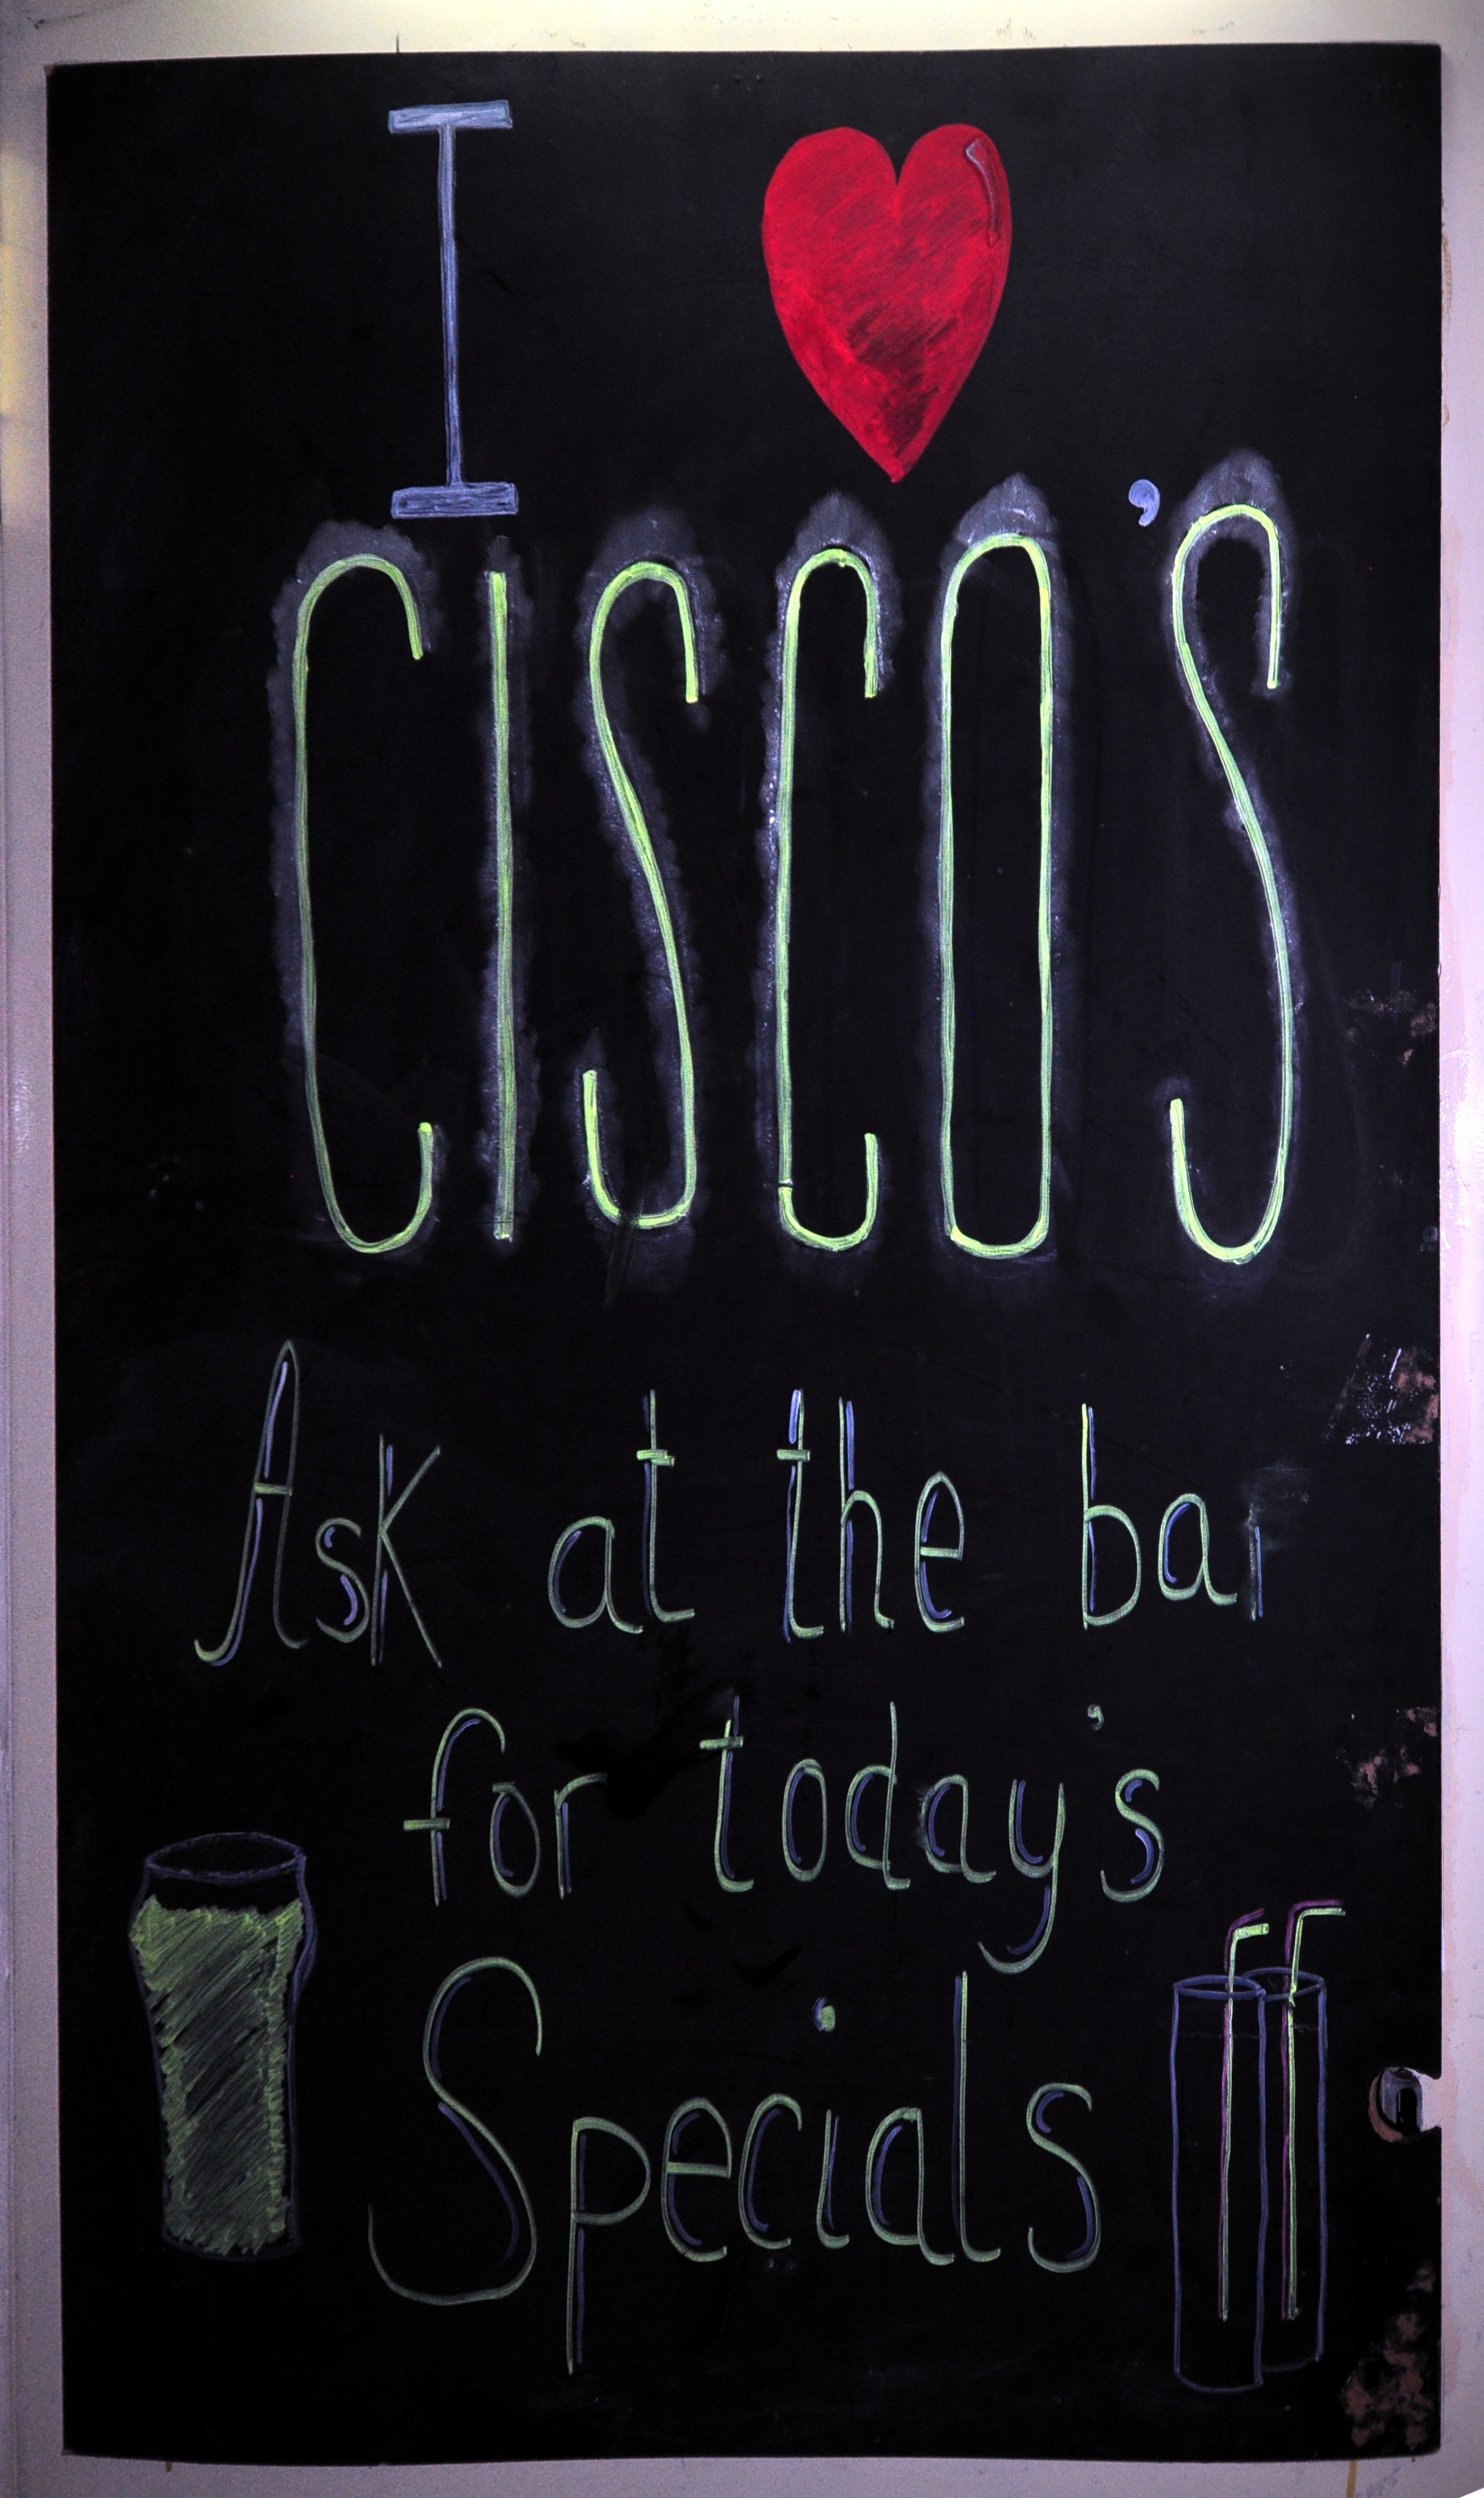 I ❤
CISCO'S
Ask at the bar
for today's
Specials